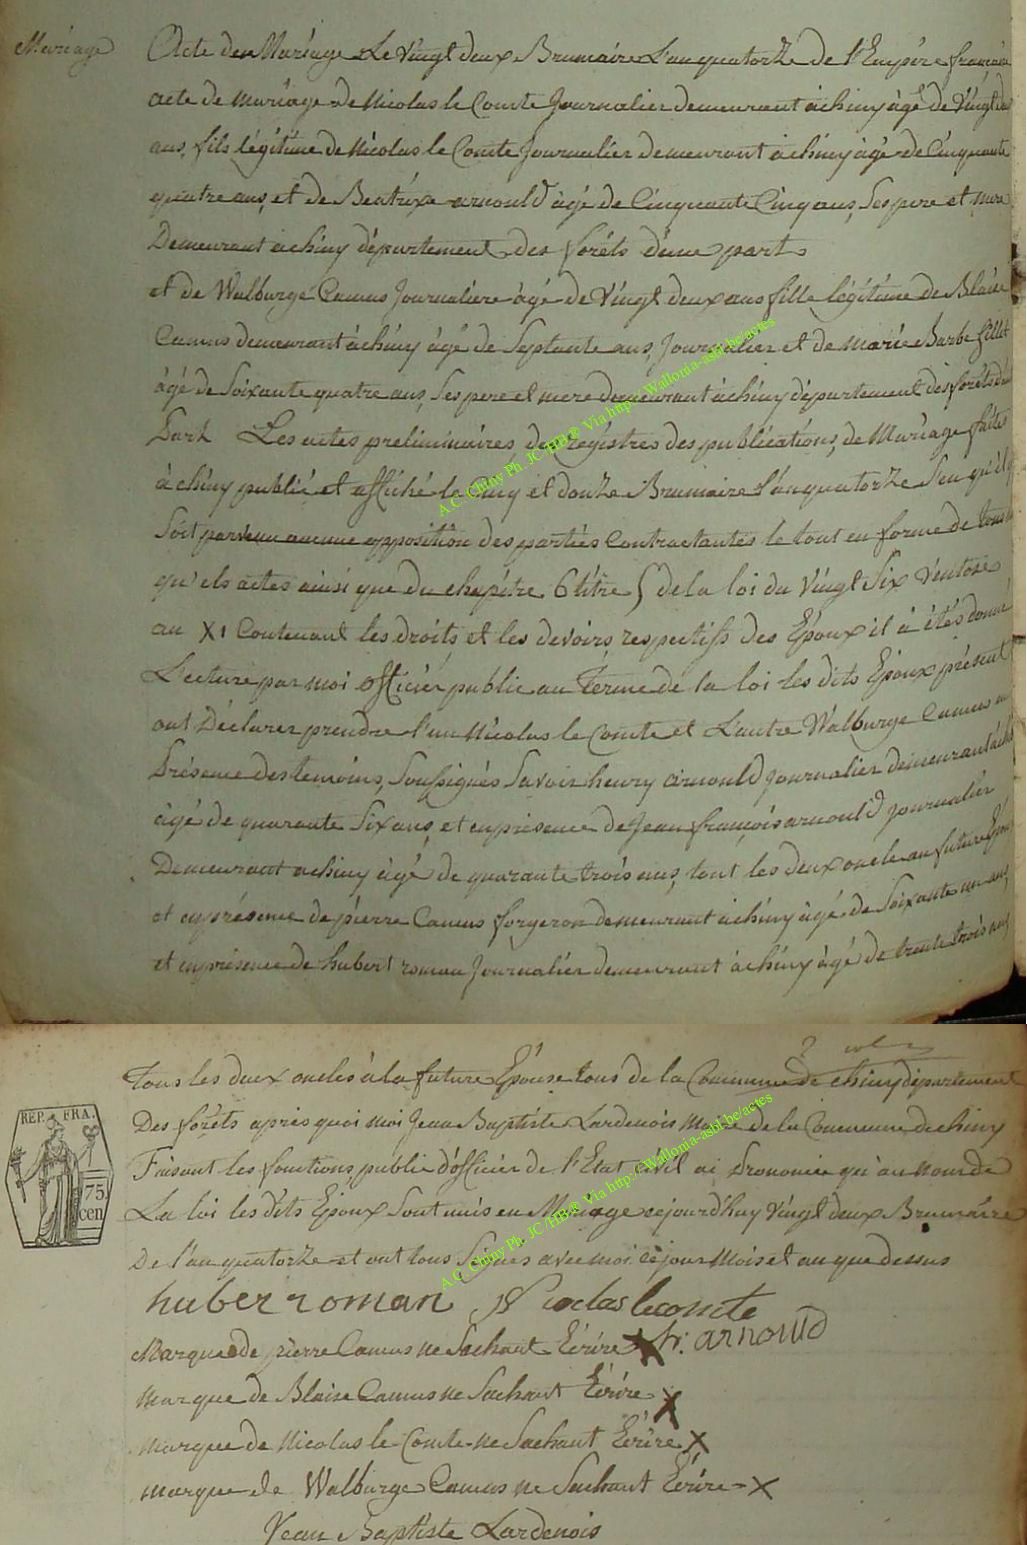 Mariage
Acte de Mariage Le Vingt deux Brumaire L'an quatorze de l'Empire français
acte de mariage de Nicolas le Comte Journalier demeurant à chiny âgé de Vingt deux
ans, fils légitime de Nicolas le Comte Journalier demeurant à chiny âgé de Cinquante
quatre ans, et de Beatrixe arnould âgé de Cinquante Cinq ans, Ses pere et mere
Demeurant à chiny département des forêts d'une part
et de Walburge Camus Journaliere âgé de Vingt deux ans fille légitime de Blaise
Camus demeurant à chiny âgé de Septante ans, Journalier et de marie Barbe
âgé de Soixante quatre ans, Ses pere et mere demeurant à chiny département des forêts
Part Les actes preliminaires, des registres des publications, de Mariage faites
à chiny publié et affiché le cinq et douze Brumaire l'an quatorze
Soit parvenu aucune opposition des parties Contractantes le tout en forme de tous
qu'els actes ainsi que du chapitre 6 titre 5 de la loi du Vingt Six Ventose
an XI Contenant les droits et les devoirs respectifs des Epoux il à étés donné
Lecture par moi officier public au Terme de la loi les dits Epoux présent
ont Déclarer prendre l'un Nicolas le Comte et L'autre Walburge Camus en
Présence des temoins, Soussignés Savoir henry arnould Journalier demeurant à chiny
âgé de quarante Six ans, et en présence de Jean françois arnould Journalier
Demeurant a chiny âgé de quarante trois ans, tout les deux oncle au future Epoux
et en présence de pierre Camus forgeron demeurant à chiny âgé de Soixante un ans,
et en présence de hubert roman Journalier demeurant à chiny âgé de trente trois ans
Tous les deux oncles à la future Epouse tous de la Commune de chiny département
Des forêts après quoi moi Jean Baptiste Lardenois Maire de la Commune de chiny
REP. FRA.
Faisant les fonctions, public d'officier de l'Etat civil ai Prononcée qu'au nom de
75
cen
La loi les dits Epoux Sont unis en Mariage cejourd'huy Vingt deux Brumaire
De l'an quatorze et ont tous Signés avec moi ce jour Mois et an que dessus
huber roman Nicolas lecomte
Marque de pierre Camus ne Sachant Ecrire X h: arnould
marque de Blaise Camus ne Sachant Ecrire X
marque de Nicolas le Comte ne Sachant Ecrire X
marque de Walburge Camus ne Sachant Ecrire X
Jean Baptiste Lardenois
A.C. Chiny Ph. JC/HB® Via http://Wallonia-asbl.be/actes
A.C. Chiny Ph. JC/HB® Via http://Wallonia-asbl.be/actes